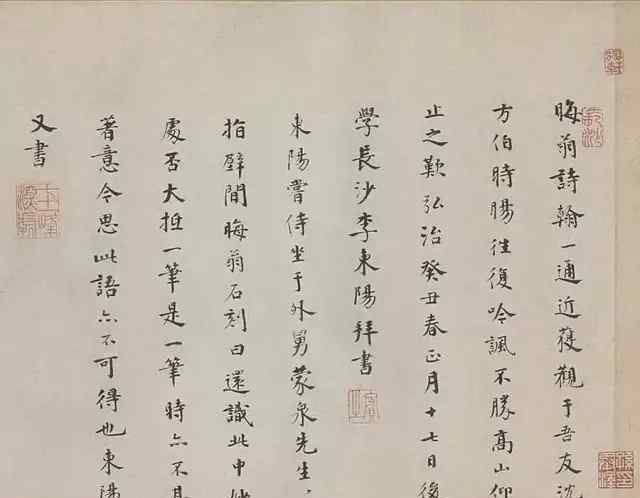 晦翁詩翰一通近獲觀于吾友沈
方伯時暘往復吟諷不勝高山仰
止之歎弘治癸丑春正月十七日後
學長沙李東陽拜書
東陽嘗侍坐于外舅蒙泉先生
指壁間晦翁石刻曰還識此中妙
處否大抵一筆是一筆時亦不甚
著意今思此語亦不可得也東陽
又書